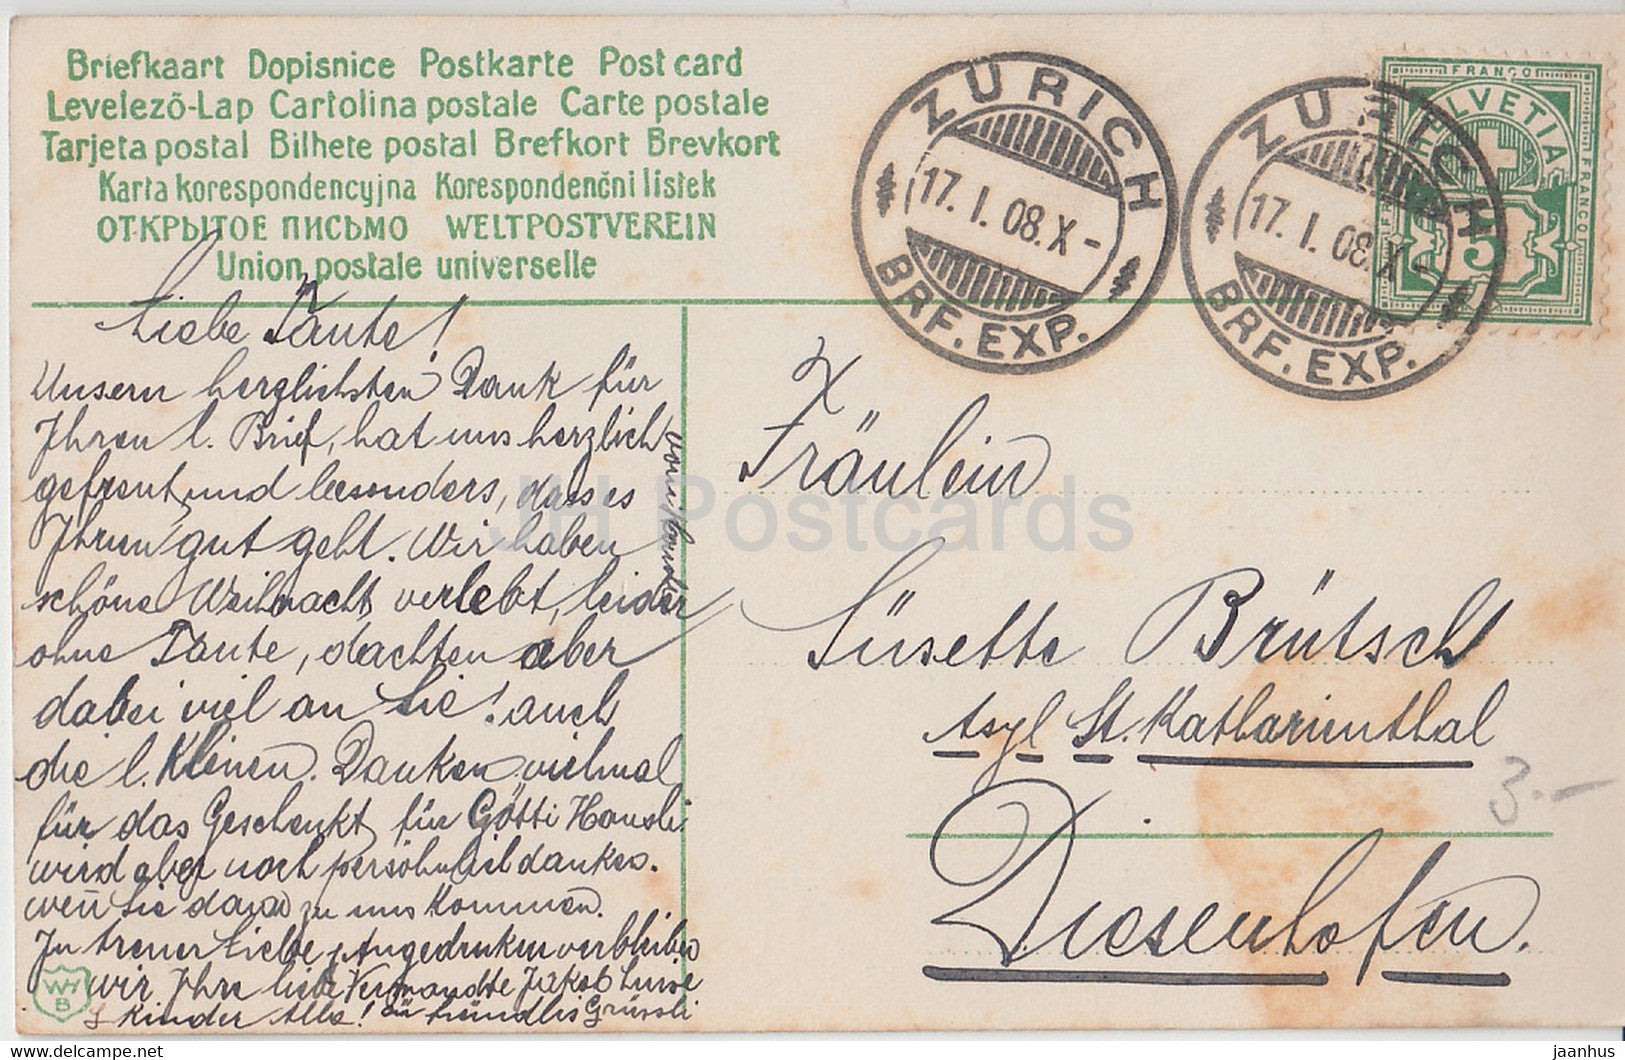 Briefkaart Dopisnice Postkarte Post card
Levelező-Lap Cartolina postale Carte postale
Tarjeta postal Bilhete postal Brefkort Brevkort
Karta korespondencyjna Korespondenčni listek
ОТКРЫТОЕ ПИСЬМО WELTPOSTVEREIN
Union postale universelle
ZÜRICH
17. I. 08. X -
BRF. EXP.
ZÜRICH
17. I. 08. X -
BRF. EXP.
FRANCO
HELVETIA
FRANCO
5
Liebe Tante!
Unsern herzlichsten Dank für
Ihren l. Brief, hat uns herzlich
gefreut, und besonders, dass es
Ihnen gut geht. Wir haben
schöne Weihnacht verlebt, leider
ohne Tante, dachten aber
dabei viel an Sie! auch
die l. Kleinen. Danken vielmal
für das Geschenkt für Götti Hansli
wird aber noch persöhnlich danken.
wen̄ Sie dan̄ zu uns kommen.
In treuer Liebe Angedenken verbleiben
wir Ihre liebe Verwandte Jakob Luise
& Kinder Alle! ein Grüssli
vom Hansli
Fräulein
Süsette Brütsch
Asyl St. Katharienthal
Diesenhofen.
3.-
WH
B
JH Postcards
delcampe.net
jaanhus